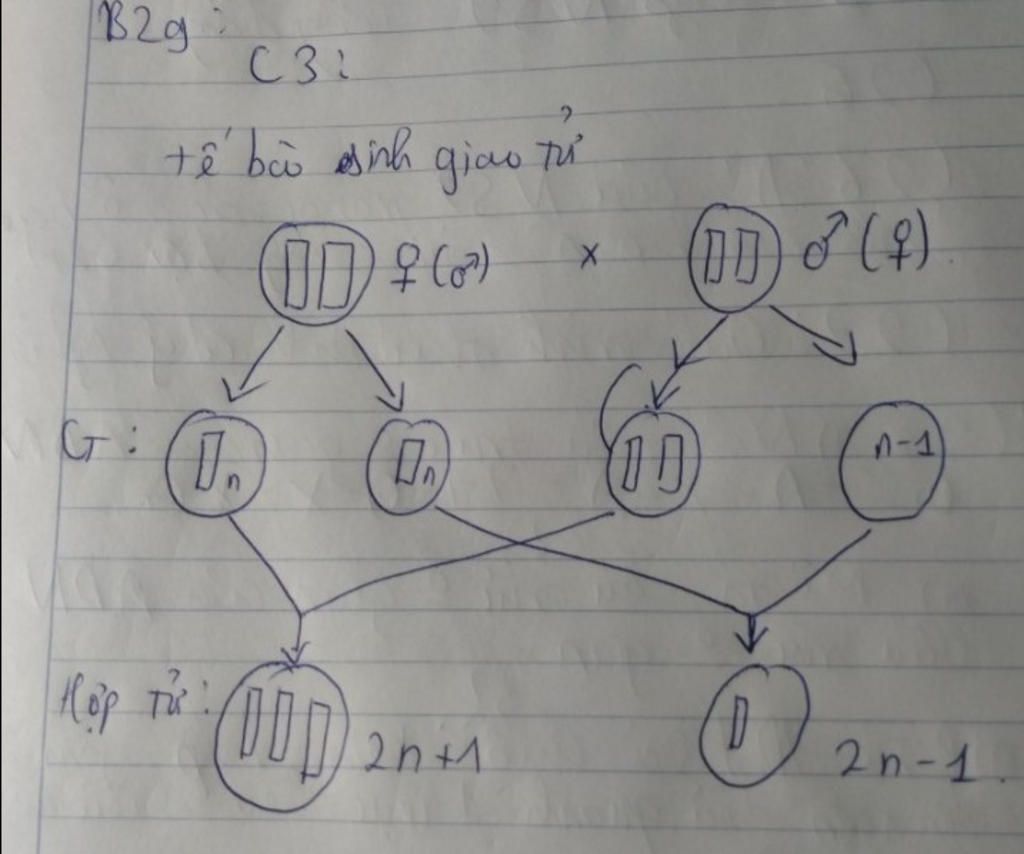 B2g :
C3:
tế bào sinh giao tử
♀(♂) x ♂(♀)
G: n n n-1
Hợp tử: 2n+1 2n-1.